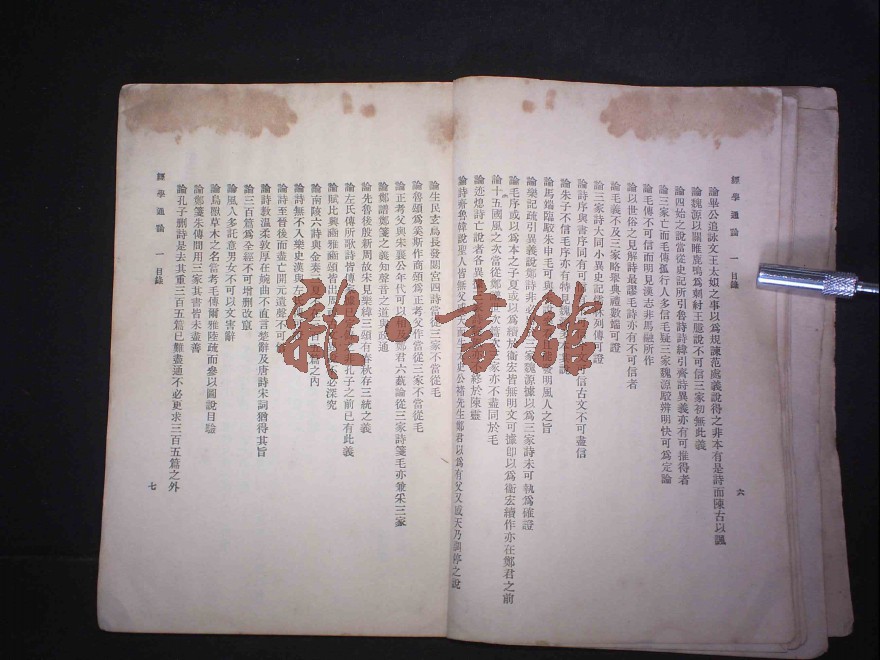 經學通論 一 目錄
六
論畢公追詠文王太姒之事以爲規諫范處義說得之非本有是詩而陳古以諷
論魏源以關雎鹿鳴爲刺紂王臆說不可信三家初無此義
論四始之說當從史記所引魯詩詩緯引齊詩異義亦有可推得者
論三家亡而毛傳孤行人多信毛疑三家魏源駁辨明快可爲定論
論毛傳不可信而明見漢志非馬融所作
論以世俗之見解詩最謬毛詩亦有不可信者
論毛義不及三家略舉典禮數端可證
論三家詩大同小異史記
列傳可證
論詩序與書序同有可
信古文不可盡信
論朱子不信毛序亦有特見魏
論馬端臨駁朱申毛可與
發明風人之旨
論樂記疏引異義說鄭詩非必
魏源據以爲三家詩未可執爲確證
論毛序或以爲本之子夏或以爲續於衛宏皆無明文可據即以爲衞宏續作亦在鄭君之前
論十五國風之次當從鄭
世次
亦不盡同於毛
論迹熄詩亡說者各異
終於陳靈
論詩齊魯韓說聖人皆無父
史公褚先生鄭君以爲有父又感天乃調停之說
論生民玄鳥長發閟宮四詩當從三家不當從毛
論魯頌爲奚斯作商頌爲正考父作當從三家不當從毛
論正考父與宋襄公年代可以相
鄭君六藝論從三家詩箋毛亦兼采三家
論鄭譜鄭箋之義知聲音之道與政通
論先魯後殷新周故宋見樂緯三頌有春秋存三統之義
論左氏傳所歌詩皆傳
孔子之前已有此義
論賦比興豳雅豳頌皆出周
必深究
論南陵六詩與金奏
夏
之內
論詩無不入樂史漢與左
論詩至晉後而盡亡開元遺聲不可
論詩教溫柔敦厚在婉曲不直言楚辭及唐詩宋詞猶得其旨
論三百篇爲全經不可增刪改竄
論風人多託意男女不可以文害辭
論鳥獸草木之名當考毛傳爾雅陸疏而參以圖說目驗
論鄭箋朱傳間用三家其書皆未盡善
論孔子刪詩是去其重三百五篇已難盡通不必更求三百五篇之外
經學通論 一 目錄
七
雜書館